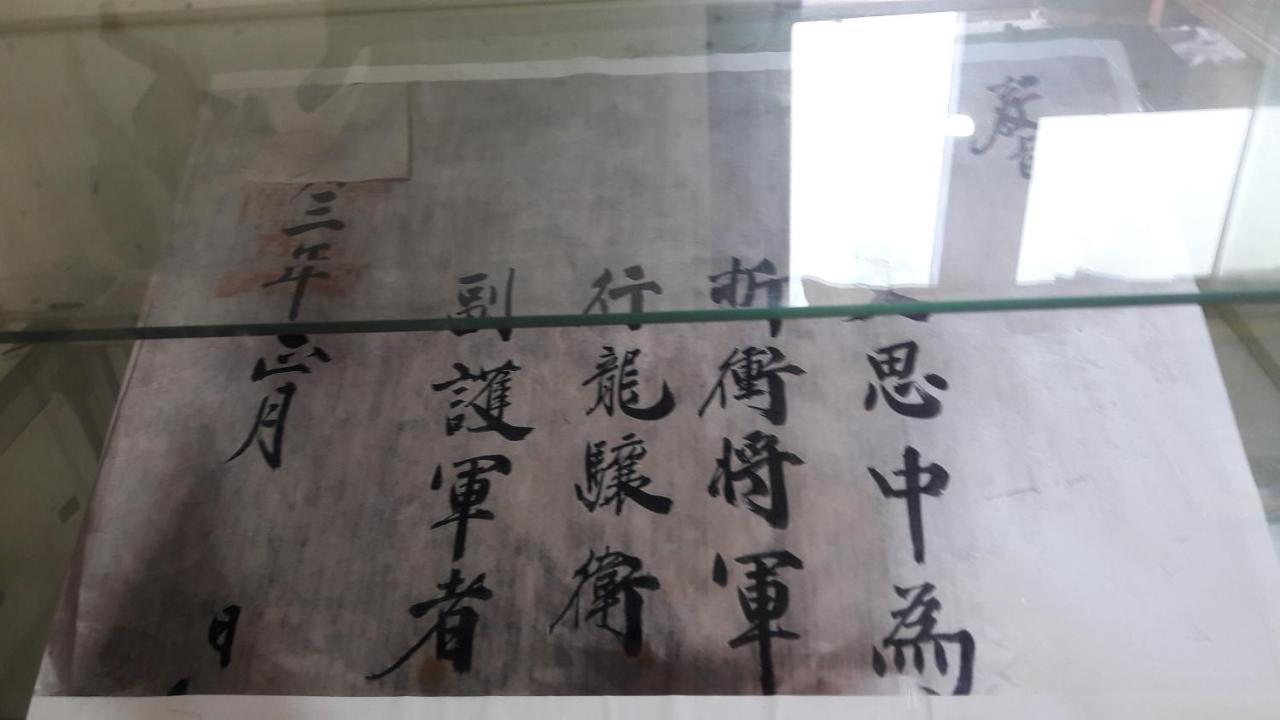 教旨
思中為
折衝将軍
行龍驤衛
副護軍者
三年正月
日